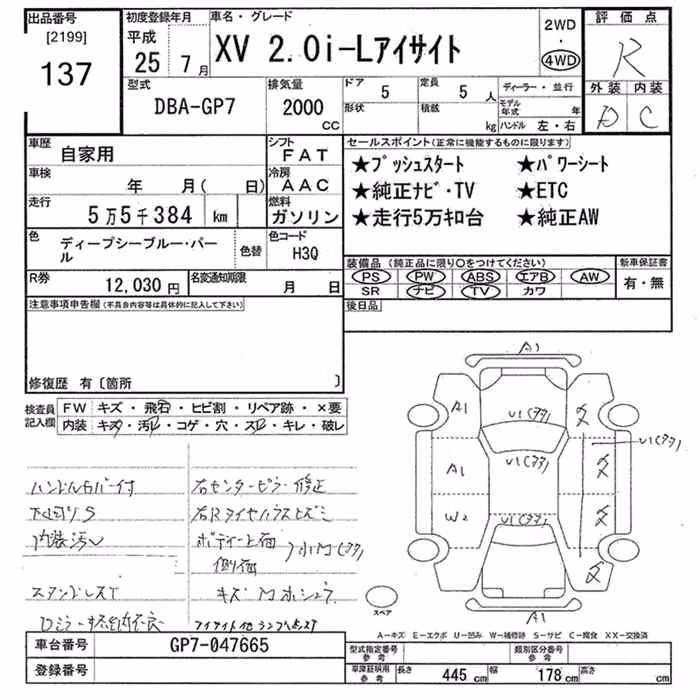 出品番号 初度登録年月 車名・グレード 2WD 評価点
[2199] 平成 XV 2.0i-Lアイサイト ・ R
137 25 7月 4WD 外装 内装
型式 排気量 ドア 5 定員 5人 ディーラー・並行 D C
DBA-GP7 2000 CC 形状 積載 kg モデル年式 年
ハンドル 左・右
車歴 自家用 シフト FAT セールスポイント(正常に機能するものに限ります)
車検 年 月( 日) 冷房 AAC ★プッシュスタート ★パワーシート
走行 5万5千384 km 燃料 ガソリン ★純正ナビ・TV ★ETC
★走行5万キロ台 ★純正AW
色 ディープシーブルー・パール 色替 色コード H3Q
装備品 (純正品に限り○をつけてください) 新車保証書
R券 12,030円 名変通知期限 月 日 PS PW ABS エアB AW 有・無
SR ナビ TV カワ
注意事項申告欄(不具合内容等は具体的に記入して下さい) 後日品
修復歴 有〔箇所 〕
検査員記入欄 FW キズ・飛石・ヒビ割・リペア跡・×要
内装 キズ・汚れ・コゲ・穴・スレ・キレ・破レ
A1
A1
A1
W2
A1
ハンドルカバー付 右センターピラー修正
下回りS
内装汚レ ボディー上面
側面
スペア
A-キズ E-エクボ U-凹み W-補修跡 S-サビ C-腐食 XX-交換済
車台番号 GP7-047665 型式指定番号 参考 類別区分番号 参考
登録番号 車庫証明用 参考 長さ 445 cm 幅 178 cm 高さ cm